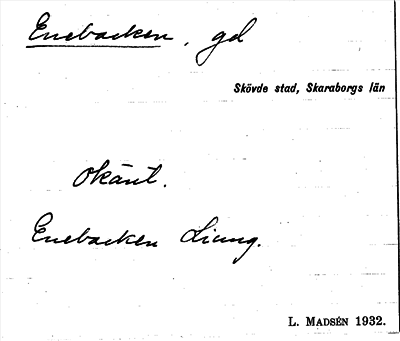 Enebacken, gd
Skövde stad, Skaraborgs län
Okänt.
Enebacken Ljung.
L. MADSÉN 1932.